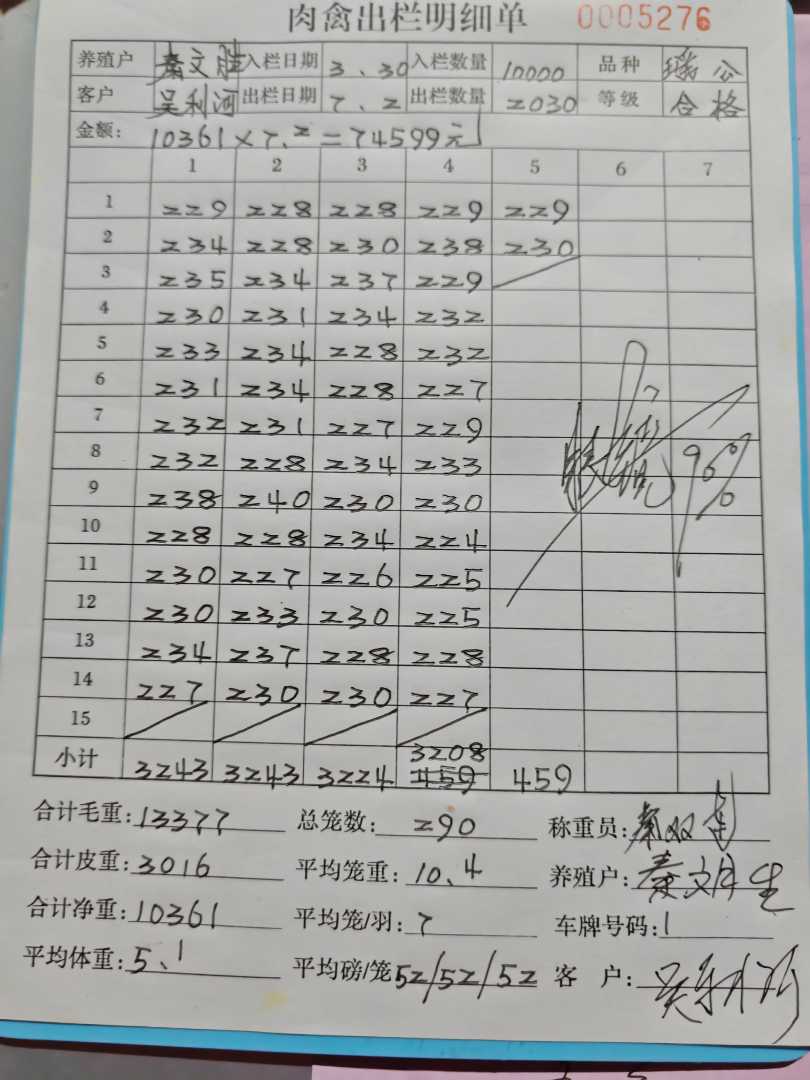 肉禽出栏明细单 0005276
养殖户 秦文胜 入栏日期 3、30 入栏数量 10000 品种 瑞公
客户 吴利河 出栏日期 7、2 出栏数量 2030 等级 合格
金额: 10361×7.2=74599元
1 2 3 4 5 6 7
1 229 228 228 229 229
2 234 228 230 238 230
3 235 234 237 229
4 230 231 234 232
5 233 234 228 232
6 231 234 228 227
7 232 231 227 229
8 232 228 234 233
9 238 240 230 230
10 228 228 234 224
11 230 227 226 225
12 230 233 230 225
13 234 237 228 228
14 227 230 230 227
15
3208
小计 3243 3243 3224 459 459
合计毛重: 13377 总笼数: 290 称重员: 秦双
合计皮重: 3016 平均笼重: 10、4 养殖户: 秦文胜
合计净重: 10361 平均笼/羽: 7 车牌号码: 1
平均体重: 5、1 平均磅/笼 52/52/52 客 户: 吴利河